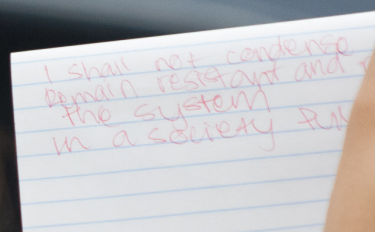 I shall not condense
remain resistant and
the system
in a society